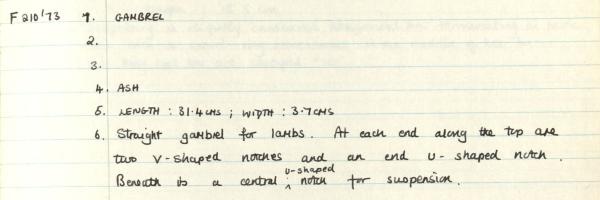 F210'73 1. GAMBREL
2.
3.
4. ASH
5. LENGTH : 31.4CMS ; WIDTH : 3.7CMS
6. Straight gambrel for lambs. At each end along the top are
two V-shaped notches and an end U-shaped notch.
Beneath is a central U-shaped notch for suspension.